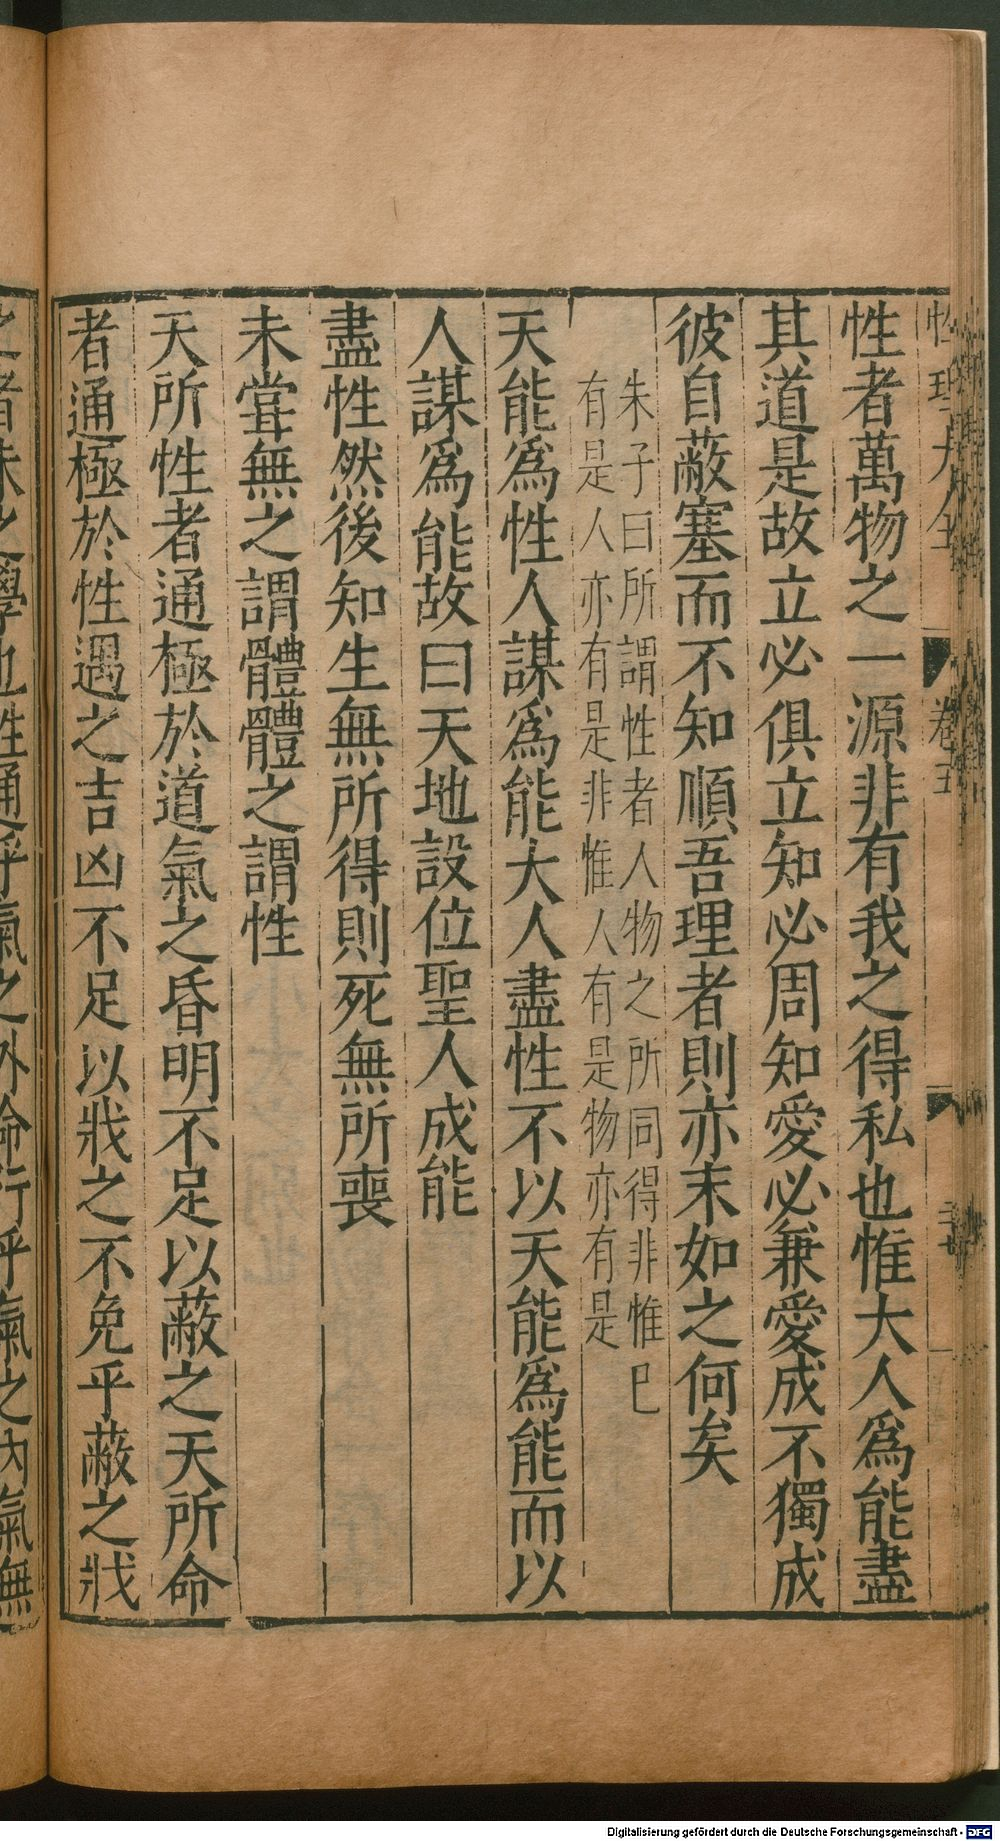 性理大全
卷五
二十七
性者萬物之一源非有我之得私也惟大人爲能盡
其道是故立必俱立知必周知愛必兼愛成不獨成
彼自蔽塞而不知順吾理者則亦末如之何矣
朱子曰所謂性者人物之所同得非惟已
有是人亦有是非惟人有是物亦有是
天能爲性人謀爲能大人盡性不以天能爲能而以
人謀爲能故曰天地設位聖人成能
盡性然後知生無所得則死無所喪
未甞無之謂體體之謂性
天所性者通極於道氣之昏明不足以蔽之天所命
者通極於性遇之吉凶不足以戕之不免乎蔽之戕
之者未之學也性通乎氣之外命行乎氣之內氣無
Digitalisierung gefördert durch die Deutsche Forschungsgemeinschaft - DFG